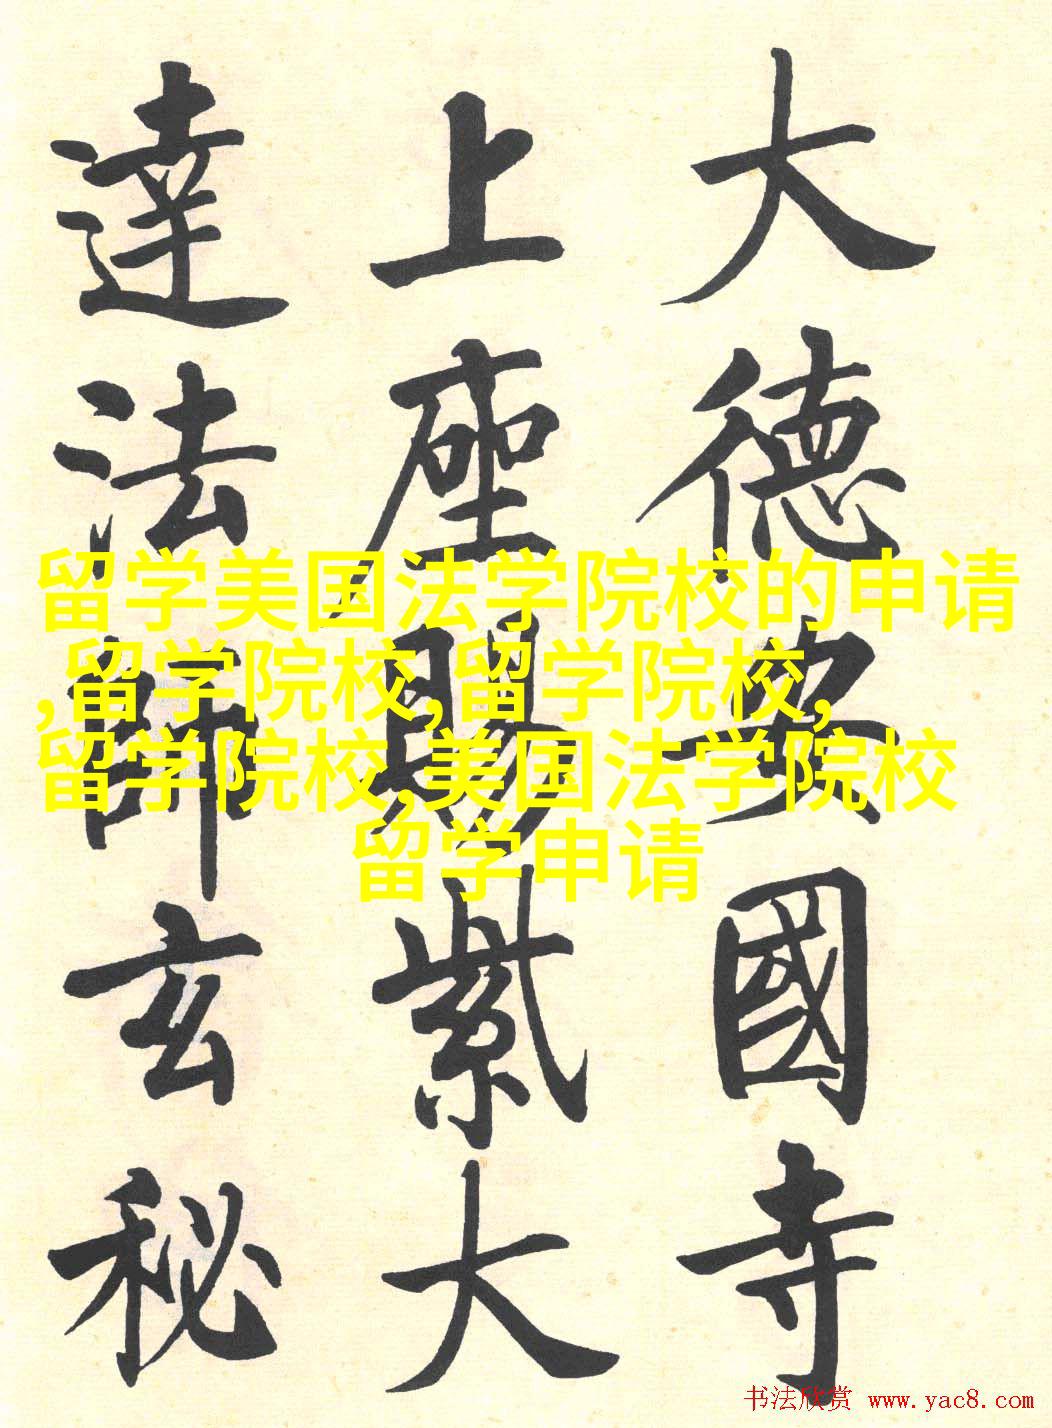 大德安國寺
上座賜紫大
達法師玄秘
留学美国法学院校的申请
,留学院校,留学院校,
留学院校,美国法学院校
留学申请
书法欣赏 www.yac8.com